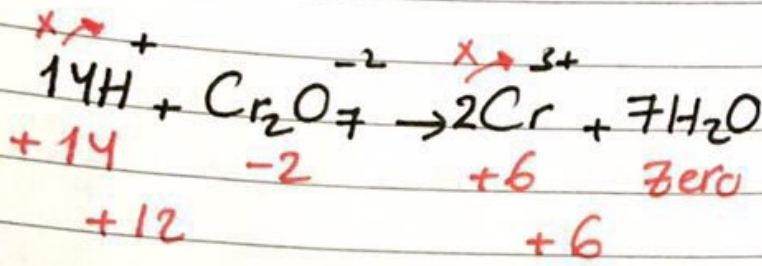 x +
14H⁺ + Cr₂O₇⁻² → 2Cr³⁺ + 7H₂O
+14 -2 +6 Zero
+12 +6